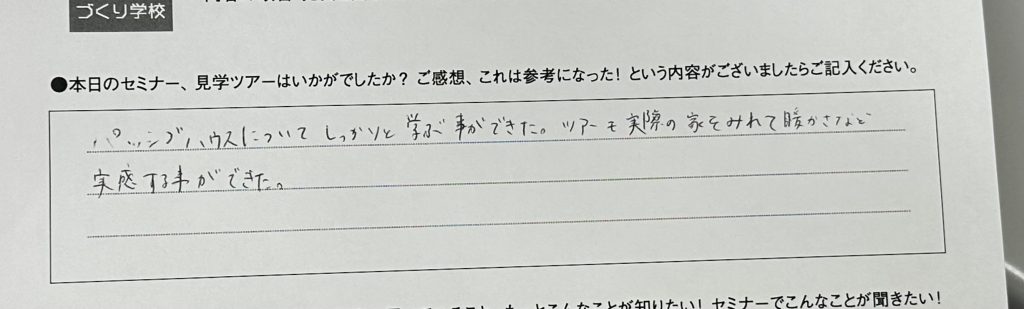 づくり学校
●本日のセミナー、見学ツアーはいかがでしたか？ご感想、これは参考になった！という内容がございましたらご記入ください。
パッシブハウスについてしっかりと学ぶ事ができた。ツアーも実際の家をみれて暖かさなど
実感する事ができた。
こんなことが知りたい！セミナーでこんなことが聞きたい！